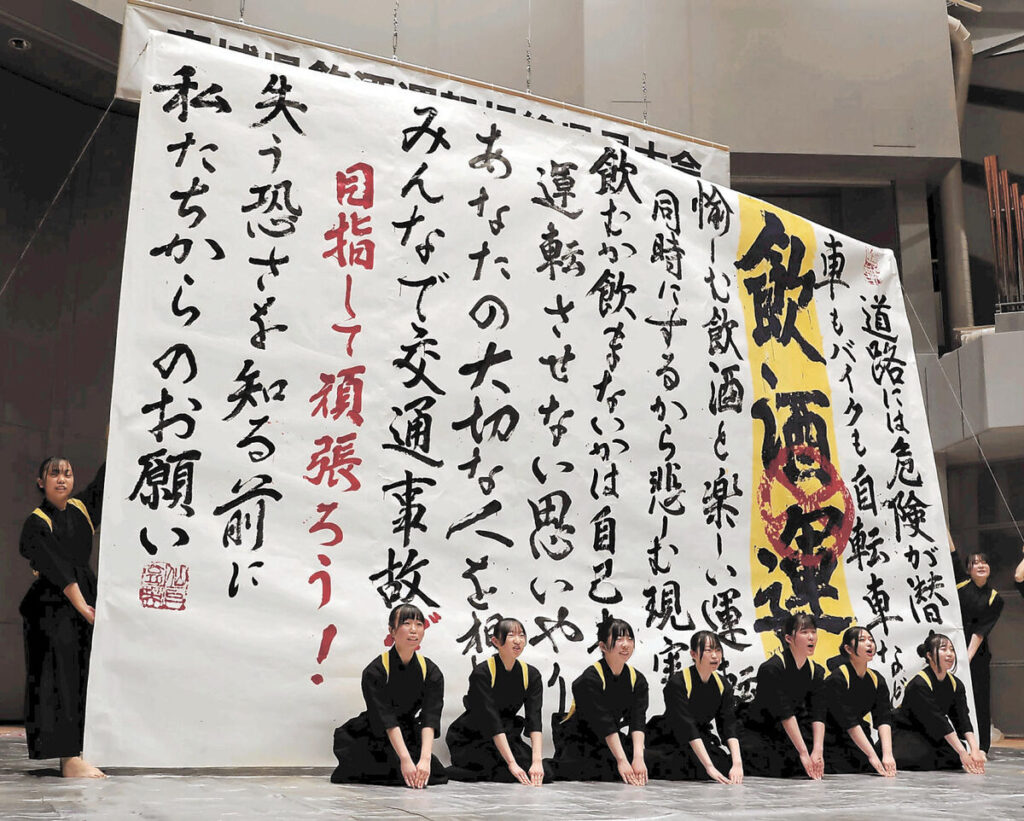 宮城県飲酒運転根絶県民大会
道路には危険が潜
車もバイクも自転車な
飲酒運
愉しむ飲酒と楽しい運転
同時にするから悲しむ現実
飲むか飲まないかは自己
運転させない思いやり
あなたの大切な人を
みんなで交通事故
目指して頑張ろう！
失う恐さを知る前に
私たちからのお願い